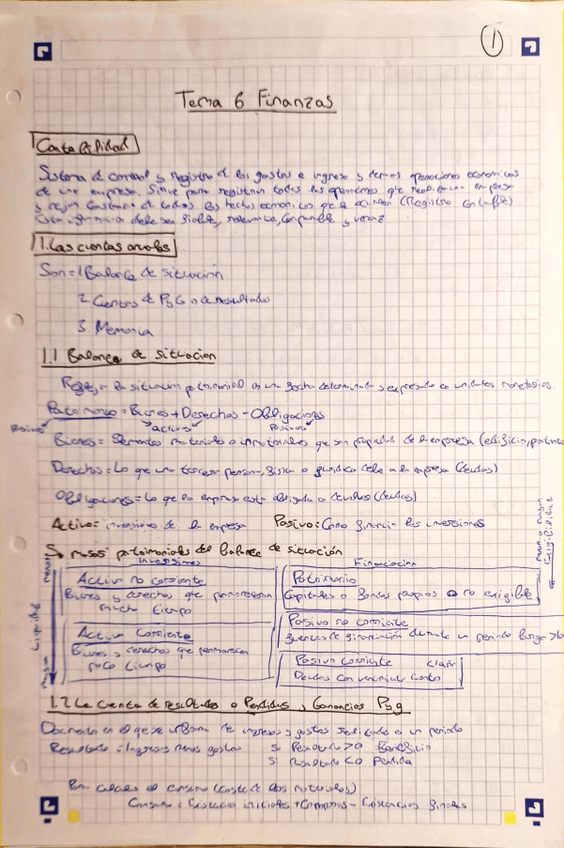 1
Tema 6 Finanzas
Contabilidad
Sistema de control y registro de los gastos e ingresos y demas operaciones economicas
de una empresa. Sirve para registrar todas las operaciones que realiza una empresa
y dejar constancia de todos los hechos economicos que le ocurren (Registro contable)
Esta debe ser fiable, relevante, comparable y veraz
1. Las cuentas anuales
Son = 1 Balance de situación
2. Cuentas de PyG o de resultados
3. Memoria
1.1 Balance de situacion
Refleja la situación patrimonial en una fecha determinada y expresada en unidades monetarias.
Patrimonio = Bienes + Derechos - Obligaciones
activo Pasivo
Bienes = Elementos materiales o inmateriales que son propiedad de la empresa (edificio, patente
Derechos = Lo que una tercera persona, fisica o juridica debe a la empresa (deudas)
Obligaciones = Lo que la empresa esta obligada a devolver (deudas)
Activo = inversiones de la empresa Pasivo = Como financia las inversiones
masas patrimoniales del balance de situación
Inversiones Financiacion
Activo no corriente
Bienes y derechos que permanecen
mucho tiempo
Patrimonio
Capitales o fondos propios o no exigible
Activo Corriente
Bienes y derechos que permanecen
poco tiempo
Pasivo no corriente
Fuentes de financiación durante un periodo largo >1a
Pasivo corriente
Deudas con vencimiento corto
menor
Liquidez
mayor
menor a mayor
Exigibilidad
1.2 La cuenta de resultados o Perdidas y Ganancias PyG
Documento en el que se informa de ingresos y gastos realizados en un periodo
Resultado = Ingresos menos gastos Si Resultado > 0 Beneficio
Si resultado < 0 Perdida
Para calcular el consumo (coste de los materiales)
Consumo = Existencias iniciales + Compras - Existencias finales